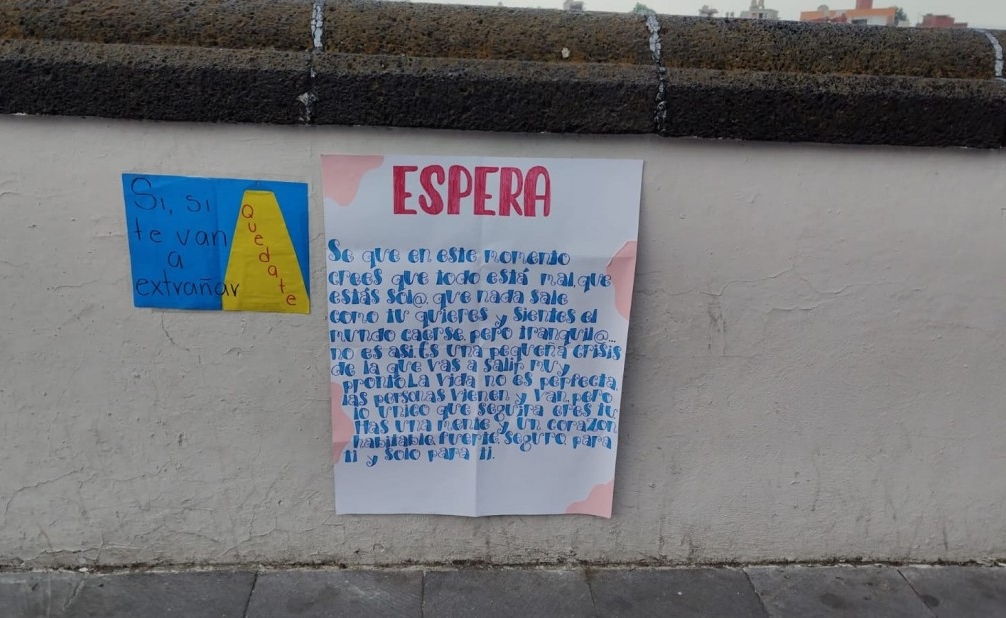 Si, si
te van
a
extrañar
Quedate
ESPERA
Se que en este momento
crees que todo está mal, que
estás sol@, que nada sale
como tu quieres y sientes el
mundo caerse, pero tranquil@...
no es asi. Es una pequeña crisis
de la que vas a salir muy
pronto. La vida no es perfecta,
las personas vienen y van, pero
lo unico que seguira eres tu
Has una mente y un corazon
habitable, fuerte, seguro para
ti y solo para ti.